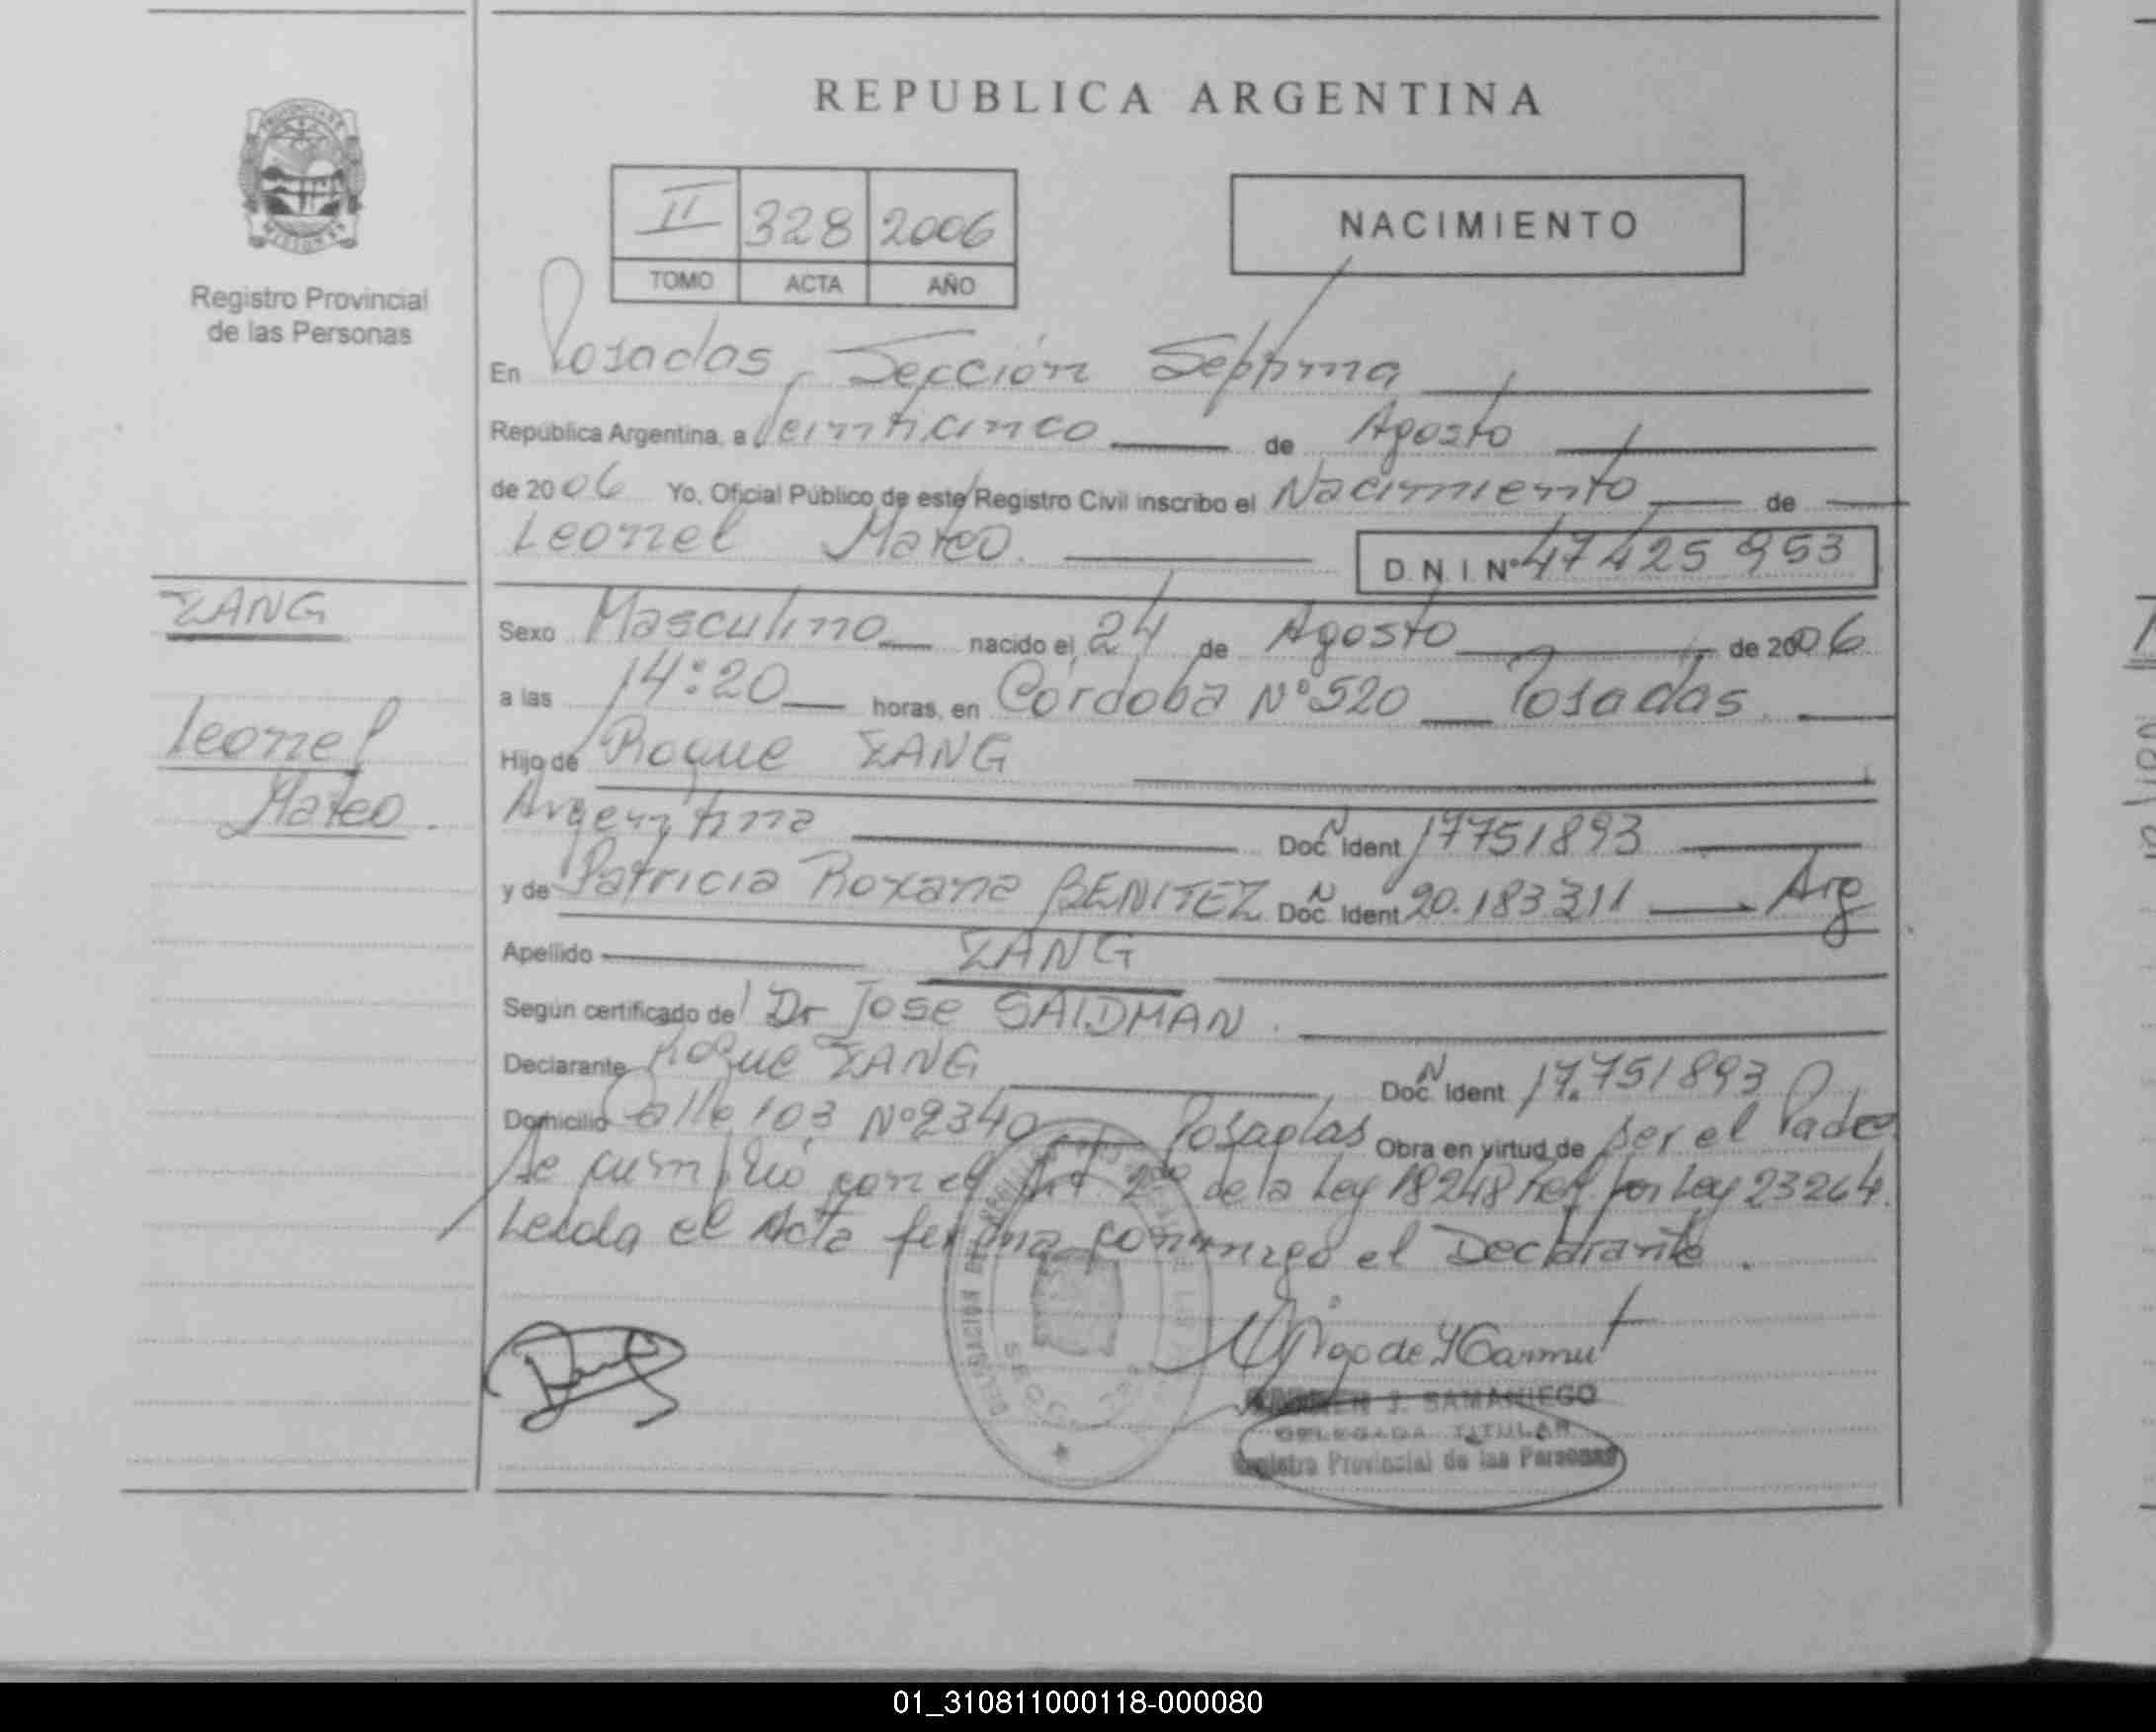 REPUBLICA ARGENTINA
II 328 2006
TOMO ACTA AÑO
NACIMIENTO
Registro Provincial
de las Personas
En Posadas, Sección Séptima
República Argentina, a Veinticinco de Agosto
de 2006 Yo, Oficial Público de este Registro Civil inscribo el Nacimiento de
Leonel Mateo.
D.N.I. Nº 47425953
ZANG
Leonel
Mateo.
Sexo Masculino nacido el 24 de Agosto de 2006
a las 14:20 horas, en Córdoba Nº 520 Posadas.
Hijo de Roque ZANG
Argentina Doc. Ident 17751893
y de Patricia Roxana BENITEZ Doc. Ident 20.183311 Arg
Apellido ZANG
Según certificado del Dr Jose SAIDMAN.
Declarante Roque ZANG Doc. Ident 17.751893
Domicilio Calle 103 Nº 2340 Posadas Obra en virtud de ser el Padre
Se cumplió con el Art. 2º de la Ley 18248 Ref. por Ley 23264.
Leída el Acta firma conmigo el Declarante.
J. SAMANIEGO
DELEGADA TITULAR
Registro Provincial de las Personas
01_310811000118-000080